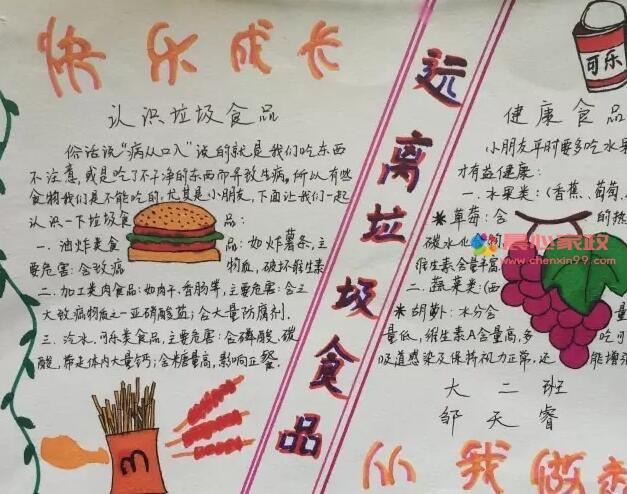 快乐成长
认识垃圾食品
俗话说“病从口入”说的就是我们吃东西
不注意,或是吃了不干净的东西而导致生病。所以有些
食物我们是不能吃的,尤其是小朋友,下面让我们一起
认识一下垃圾食品:
一.油炸类食品:如炸薯条,主
要危害:含致癌物质,破坏维生素
二.加工类肉食品:如肉干,香肠等,主要危害:含三
大致癌物质之一亚硝酸盐;含大量防腐剂.
三、汽水、可乐类食品,主要危害:含磷酸、碳
酸,带走体内大量钙;含糖量高,影响正餐.
远离垃圾食品
可乐
健康食品
小朋友平时要多吃水果
才有益健康:
一.水果类:(香蕉、葡萄、
*草莓:含 的热
碳水化 物
维生素含量丰富
二.蔬菜类:(西
*胡萝卜:水分含 量
量低,维生素A含量高,多 吃可
吸道感染及保持视力正常,还 能增强
大二班
邹天睿
晨心家政
www.chenxin99.com
小 我做